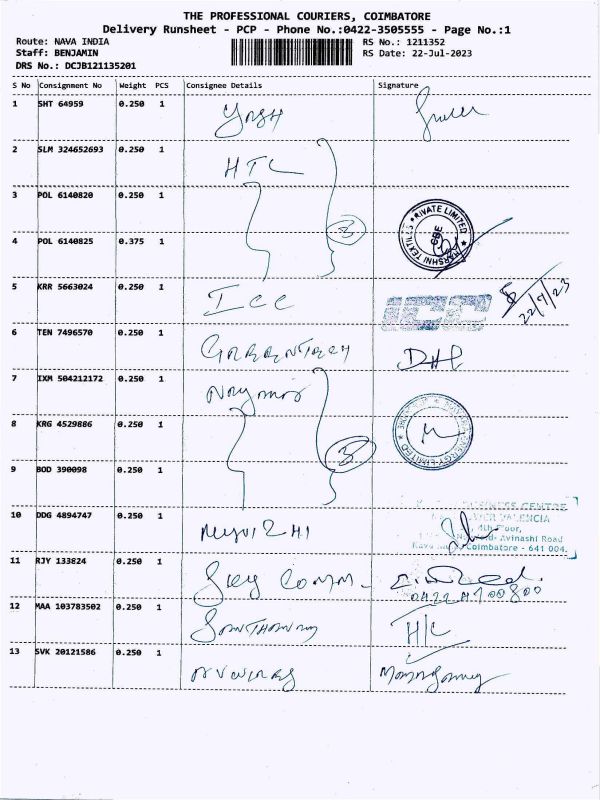 THE PROFESSIONAL COURIERS, COIMBATORE
Delivery Runsheet - PCP - Phone No.:0422-3505555 - Page No.:1
Route: NAVA INDIA RS No.: 1211352
Staff: BENJAMIN RS Date: 22-Jul-2023
DRS No.: DCJB121135201
S No Consignment No Weight PCS Consignee Details Signature
1 SHT 64959 0.250 1 Yash
2 SLM 324652693 0.250 1 HTL
3 POL 6140820 0.250 1
3
PRIVATE LIMITED
HARSHNI TEXTILES
CBE
4 POL 6140825 0.375 1
5 KRR 5663024 0.250 1 ICC ICC 22/7/23
6 TEN 7496570 0.250 1 GREENTECH
7 IXM 504212172 0.250 1
8 KRG 4529886 0.250 1
3
ENERGY LIMITED
9 BOD 390098 0.250 1
BUSINESS CENTRE
VALENCIA
10 DDG 4894747 0.250 1 4th Floor,
Avinashi Road
Coimbatore - 641 004.
11 RJY 133824 0.250 1 Sky Comm
0422 4700800
12 MAA 103783502 0.250 1
13 SVK 20121586 0.250 1